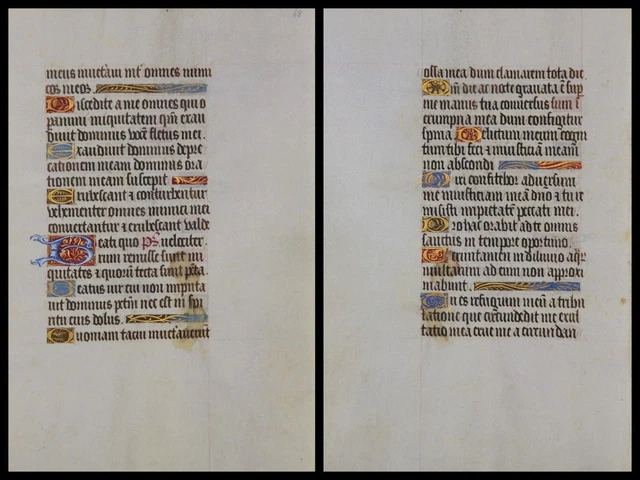 68
meus inuet'aui int' omnes inimi
cos meos.
Discedite a me omnes qui o
peramini iniquitatem qm̄ exau
diuit dominus vocē fletus mei.
Exaudiuit dominus depre
cationem meam dominus ora
tionem meam suscepit
Erubescant ⁊ conturbentur
vehementer omnes inimici mei
conuertantur ⁊ erubescant valde
Beati quo p̄s velociter.
rum remisse sunt ini
quitates ⁊ quorū tecta sunt pc̄ta.
Beatus uir cui non imputa
uit dominus pc̄tm̄ nec est in spi
ritu eius dolus.
Quoniam tacui inuet'auerūt
ossa mea dum clamarem tota die.
Qm̄ die ac nocte grauata ē sup
me manus tua conuersus sum ī
erumpna mea dum configitur
spina. Delictum meum cogni
tum tibi feci ⁊ iniusticiā meam̄
non abscondi
Dixi confitebor aduersum
me iniusticiam meā dn̄o ⁊ tu re
misisti impietatē peccati mei.
Pro hac orabit ad te omnis
sanctus in tempore oportuno.
Uerumtamen in diluuio aq̄r
multarum ad eum non approxi
mabunt.
Tu es refugium meū a tribu
latione que circundedit me exul
tatio mea erue me a circundan